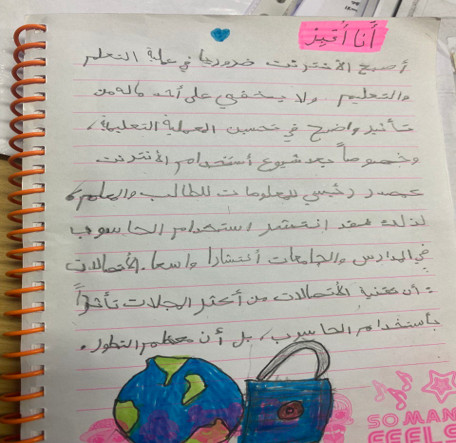 أنا أتميز
أصبح الأنترنت ضروريا في عملية التعلم
والتعليم. ولا يخفى على أحد ماله من
تأثير واضح في تحسين العملية التعليمية،
وخصوصاً بعد شيوع أستخدام الأنترنت
كمصدر رئيسي للمعلومات للطالب والمعلم،
لذلك فقد انتشر استخدام الحاسوب
في المدارس والجامعات أنتشارا واسعا. الأتصالات
: أن تقنية الأتصالات من أكثر المجلات تأخراً
بأستخدام الحاسوب، بل أن معظم التطور.
SO MAN
FEELS